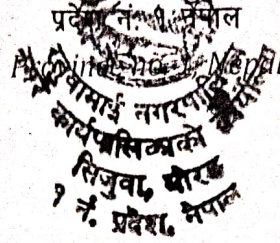 प्रदेश नं. १ नेपाल
Province No. 1, Nepal
नगरपालिका
कार्यपालिकाको
सिजुवा, मोरङ
१ नं. प्रदेश, नेपाल